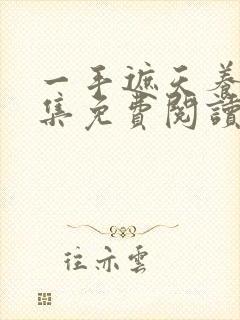 一手遮天養
集免費閱讀
往亦雲